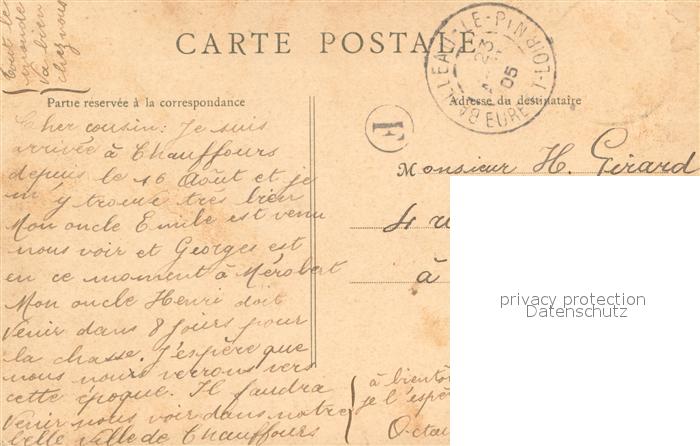 Tout le
monde
Va bien
chez nous
CARTE POSTALE
BAILLEAU-LE-PIN
EURE-&-LOIR
23
05
Partie réservée à la correspondance
Adresse du destinataire
F
Cher cousin: Je suis
arrivée à Chauffours
depuis le 16 Août et je
m'y trouve très bien
Mon oncle Emile est venu
nous voir et Georges est
en ce moment à Mérobert
Mon oncle Henri doit
Venir dans 8 jours pour
la chasse. J'espère que
nous nous verrons vers
cette époque. Il faudra
Venir nous voir dans notre
belle ville de Chauffours
Monsieur H. Girard
4 ru
à
privacy protection
Datenschutz
à bientôt
je l'espè
Octa